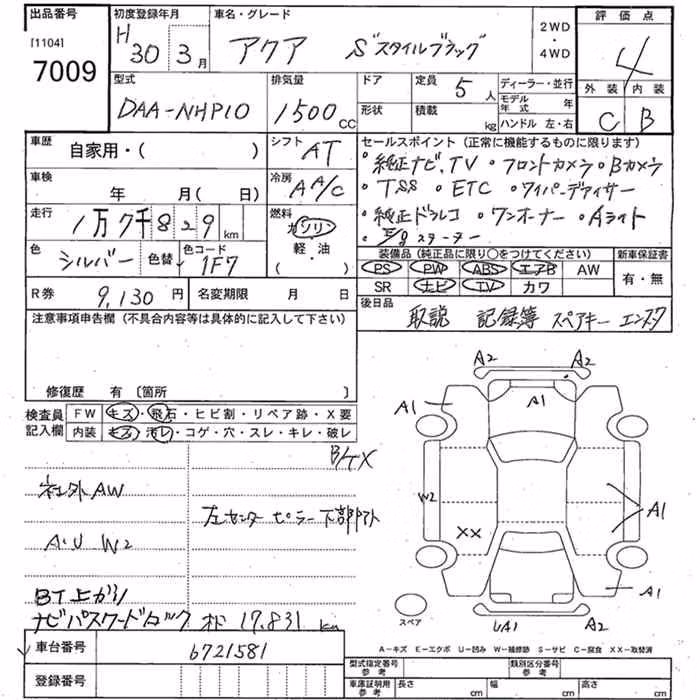 出品番号 初度登録年月 車名・グレード 2WD・4WD 評価点
[1104] 7009 H30 3月 アクア Sスタイルブラック 4
型式 排気量 ドア 定員 5人 ディーラー・並行 外装 内装
DAA-NHP10 1500cc 形状 積載 kg モデル年式 年 ハンドル 左・右 C B
車歴 自家用・( ) シフト AT セールスポイント(正常に機能するものに限ります)
・純正ナビ、TV・フロントカメラ・Bカメラ
車検 年 月(日) 冷房 AA/C ・TSS・ETC・ワイパーデアイサー
走行 1万7千829km 燃料 ガソリン 軽・油 ( ) ・純正ドラレコ・ワンオーナー・Aライト
・E/gスターター
色 シルバー 色替 色コード 1F7 装備品(純正品に限り○をつけてください) 新車保証書
PS PW ABS エアB AW 有・無
R券 9,130円 名変期限 月 日 SR ナビ TV カワ
注意事項申告欄(不具合内容等は具体的に記入して下さい) 後日品 取説 記録簿 スペアキー エンスタ
修復歴 有〔箇所 〕
検査員記入欄 FW キズ・飛石・ヒビ割・リペア跡・X要
内装 キズ・汚レ・コゲ・穴・スレ・キレ・破レ
A2 A2
A1 A1
B/ケX
社外AW 左センターピラー下部
W2 A1
A・U W2 XX
BT上ガリ A1
ナビパスワードロック 17,831km スペア UA1 A2
A-キズ E-エクボ U-凹み W-補修跡 S-サビ C-腐食 XX-取替済
車台番号 6721581
登録番号 型式指定番号 参考 類別区分番号 参考
車庫証明用 参考 長さ cm 幅 cm 高さ cm